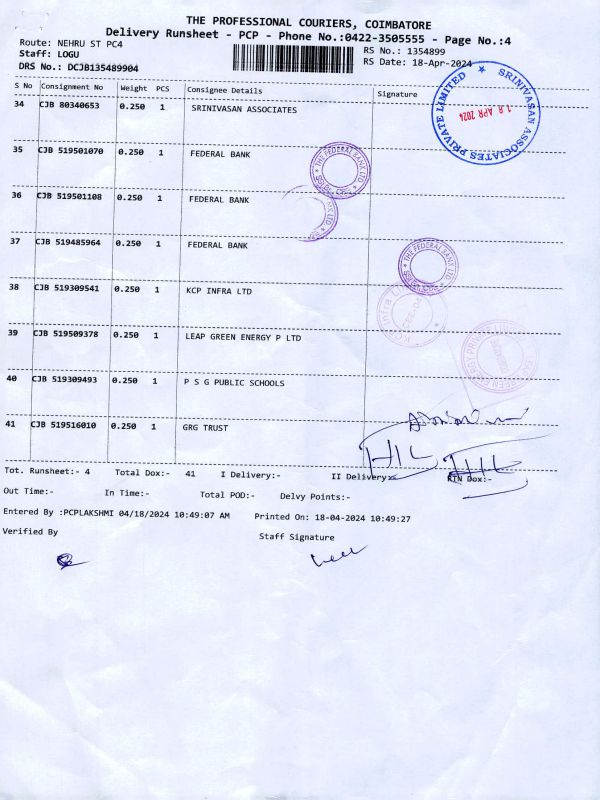 THE PROFESSIONAL COURIERS, COIMBATORE
Delivery Runsheet - PCP - Phone No.:0422-3505555 - Page No.:4
Route: NEHRU ST PC4 RS No.: 1354899
Staff: LOGU RS Date: 18-Apr-2024
DRS No.: DCJB135489904
S No Consignment No Weight PCS Consignee Details Signature
34 CJB 80340653 0.250 1 SRINIVASAN ASSOCIATES
SRINIVASAN ASSOCIATES PRIVATE LIMITED
18 APR 2024
35 CJB 519501070 0.250 1 FEDERAL BANK
THE FEDERAL BANK LTD
36 CJB 519501108 0.250 1 FEDERAL BANK
37 CJB 519485964 0.250 1 FEDERAL BANK
THE FEDERAL BANK LTD
38 CJB 519309541 0.250 1 KCP INFRA LTD
39 CJB 519509378 0.250 1 LEAP GREEN ENERGY P LTD
40 CJB 519309493 0.250 1 P S G PUBLIC SCHOOLS
41 CJB 519516010 0.250 1 GRG TRUST
Tot. Runsheet:- 4 Total Dox:- 41 I Delivery:- II Delivery:- RTN Dox:-
Out Time:- In Time:- Total POD:- Delvy Points:-
Entered By :PCPLAKSHMI 04/18/2024 10:49:07 AM Printed On: 18-04-2024 10:49:27
Verified By Staff Signature